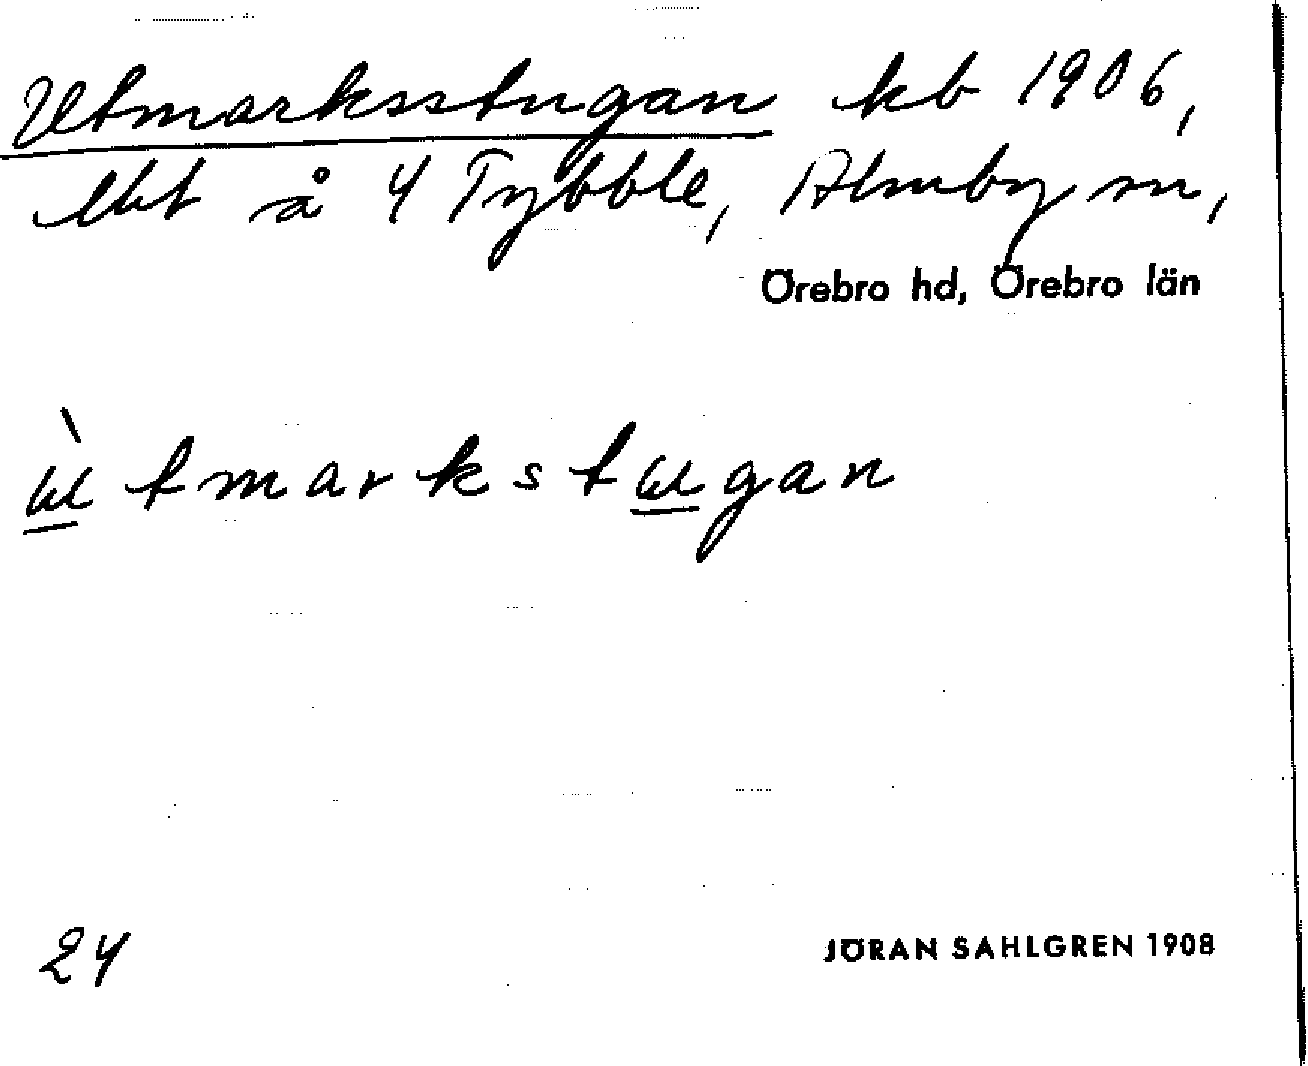 Utmarksstugan kb 1906,
lht å 4 Tybble, Almby sn,
Örebro hd, Örebro län
ùtmarkstugan
24
JÖRAN SAHLGREN 1908